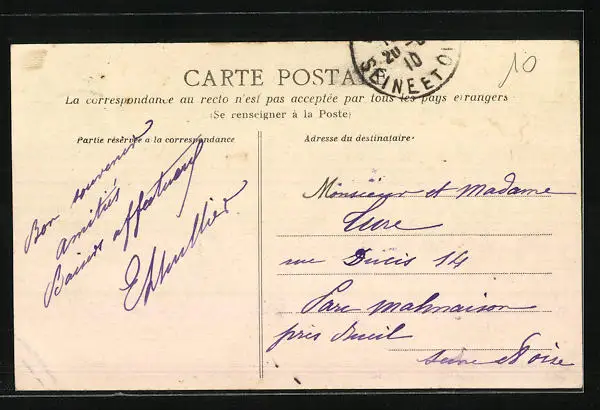 10
20
10
SEINE ET O
CARTE POSTA
La correspondance au recto n'est pas acceptée par tous les pays étrangers
(Se renseigner à la Poste)
Partie réservée a la correspondance
Bon souvenir
amitiés
Baisers affectueux
Adresse du destinataire
Monsieur et Madame
Cure
rue Ducis 14
Parc Malmaison
près Rueil
Seine et Oise